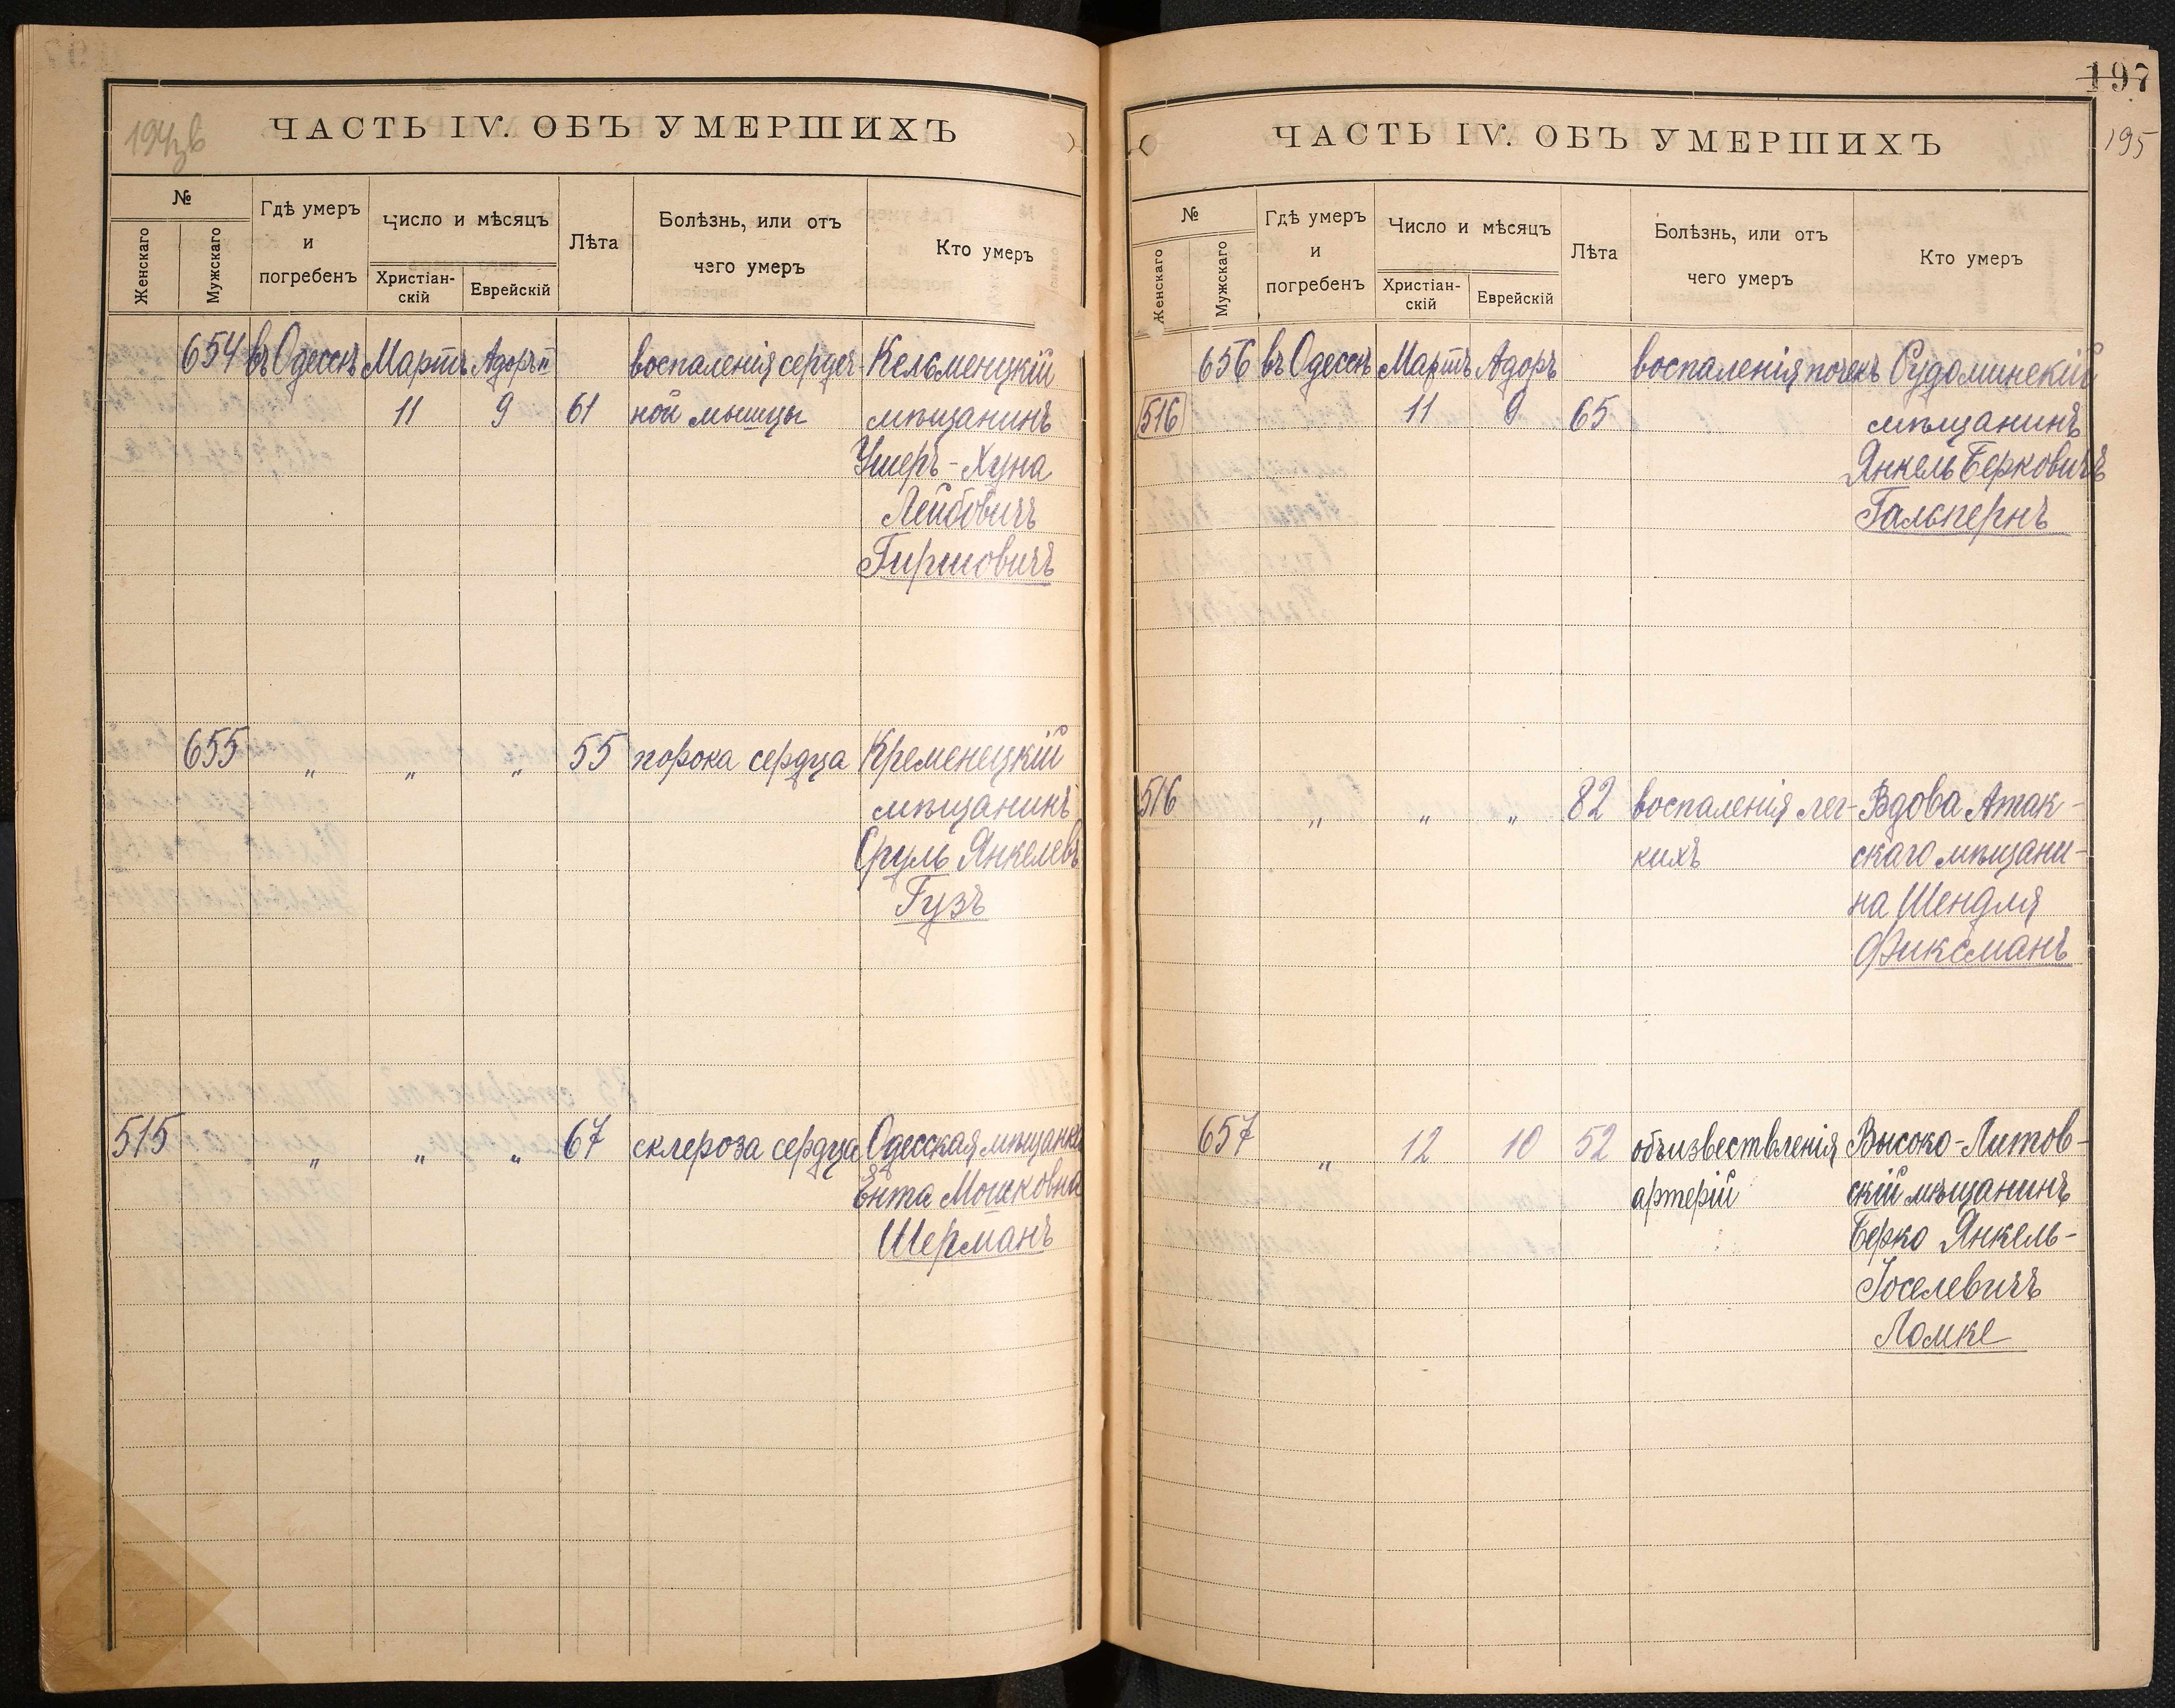 194 зв
ЧАСТЬ IV. ОБЪ УМЕРШИХЪ
№
Женскаго
Мужскаго
Гдѣ умеръ
и
погребенъ
Число и мѣсяцъ
Христіан-
скій
Еврейскій
Лѣта
Болѣзнь, или отъ
чего умеръ
Кто умеръ
654 въ Одессѣ Мартъ Адоръ II воспаленія сердеч- Кельменецкій
11 9 61 ной мышцы мѣщанинъ
Ушеръ-Хуна
Лейбовичъ
Гиршовичъ
655 " " " 55 порока сердца Кременецкій
мѣщанинъ
Сруль Янкелевъ
Гузъ
515 " " " 67 склероза сердца Одесская мѣщанка
Ента Мошковна
Шерманъ
197
195
ЧАСТЬ IV. ОБЪ УМЕРШИХЪ
№
Женскаго
Мужскаго
Гдѣ умеръ
и
погребенъ
Число и мѣсяцъ
Христіан-
скій
Еврейскій
Лѣта
Болѣзнь, или отъ
чего умеръ
Кто умеръ
656 въ Одессѣ Мартъ Адоръ воспаленія почекъ Рудоминскій
516 11 9 65 мѣщанинъ
Янкель Берковичъ
Гальпернъ
516 " " " 82 воспаленія лег- Вдова Атак-
кихъ скаго мѣщани-
на Шендля
Фиксманъ
657 " 12 10 52 объизвествленія Высоко-Литов-
артерій скій мѣщанинъ
Берко Янкель-
Іоселевичъ
Ломке